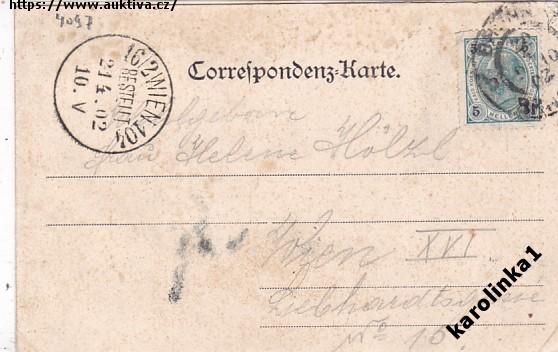 https://www.auktiva.cz/
4097
16/2 WIEN 10/4
BESTELLT
21.4.02
10.V
Correspondenz-Karte.
BRÜNN
5
HELLER
Helene Hölzl
Wien XVI
No 10
karolinka1